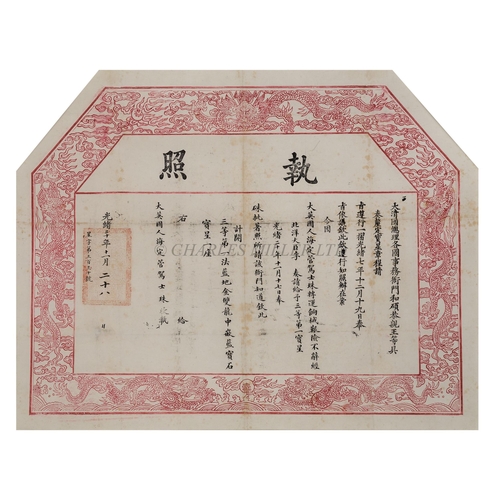 執照
大清國總理各國事務衙門和碩恭親王等具
奏奏定寶星章程摺
旨遵行一摺光緒七年十二月十九日奉
旨依議欽此欽遵行知照辦在案
今因
大英國人海定管駕士珠轉運銅械艱險不辭經
北洋大臣奏請給予三等第一寶星
光緒二十年十一月十七日奉
硃批著照所請該衙門知道欽此
計開
三等第一法藍地金雙龍中嵌藍寶石
寶星一座
右給
大英國人海定管駕士珠收執
光緒二十年十一月二十八日
CHARLES MILLER LTD